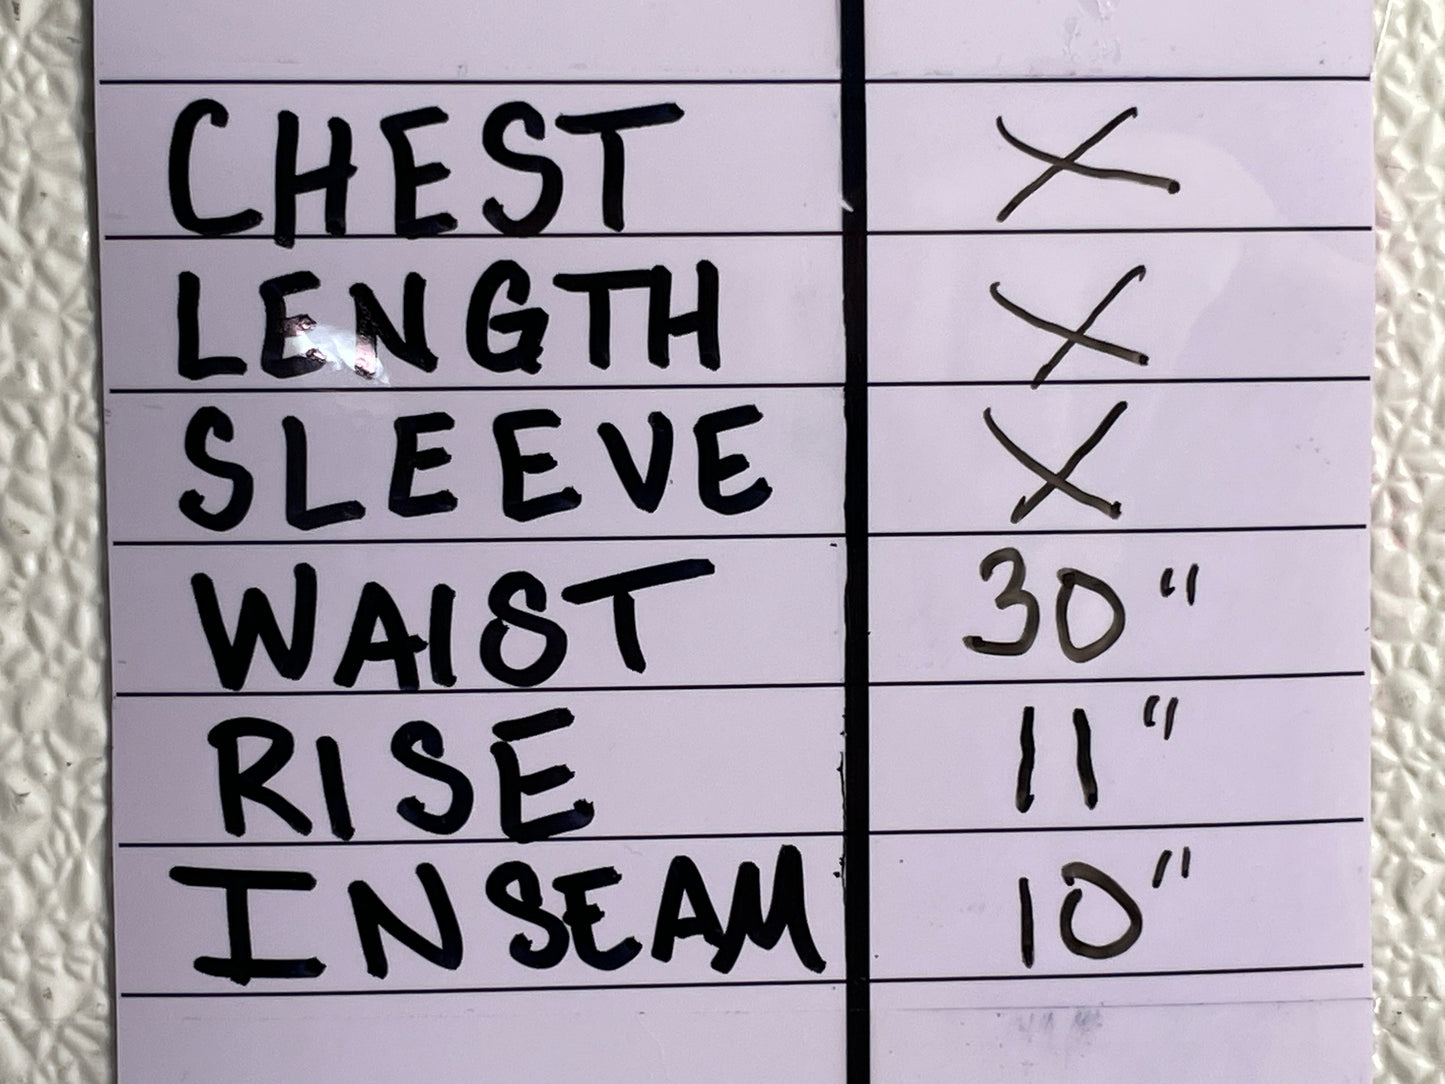 CHEST X
LENGTH X
SLEEVE X
WAIST 30"
RISE 11"
INSEAM 10"